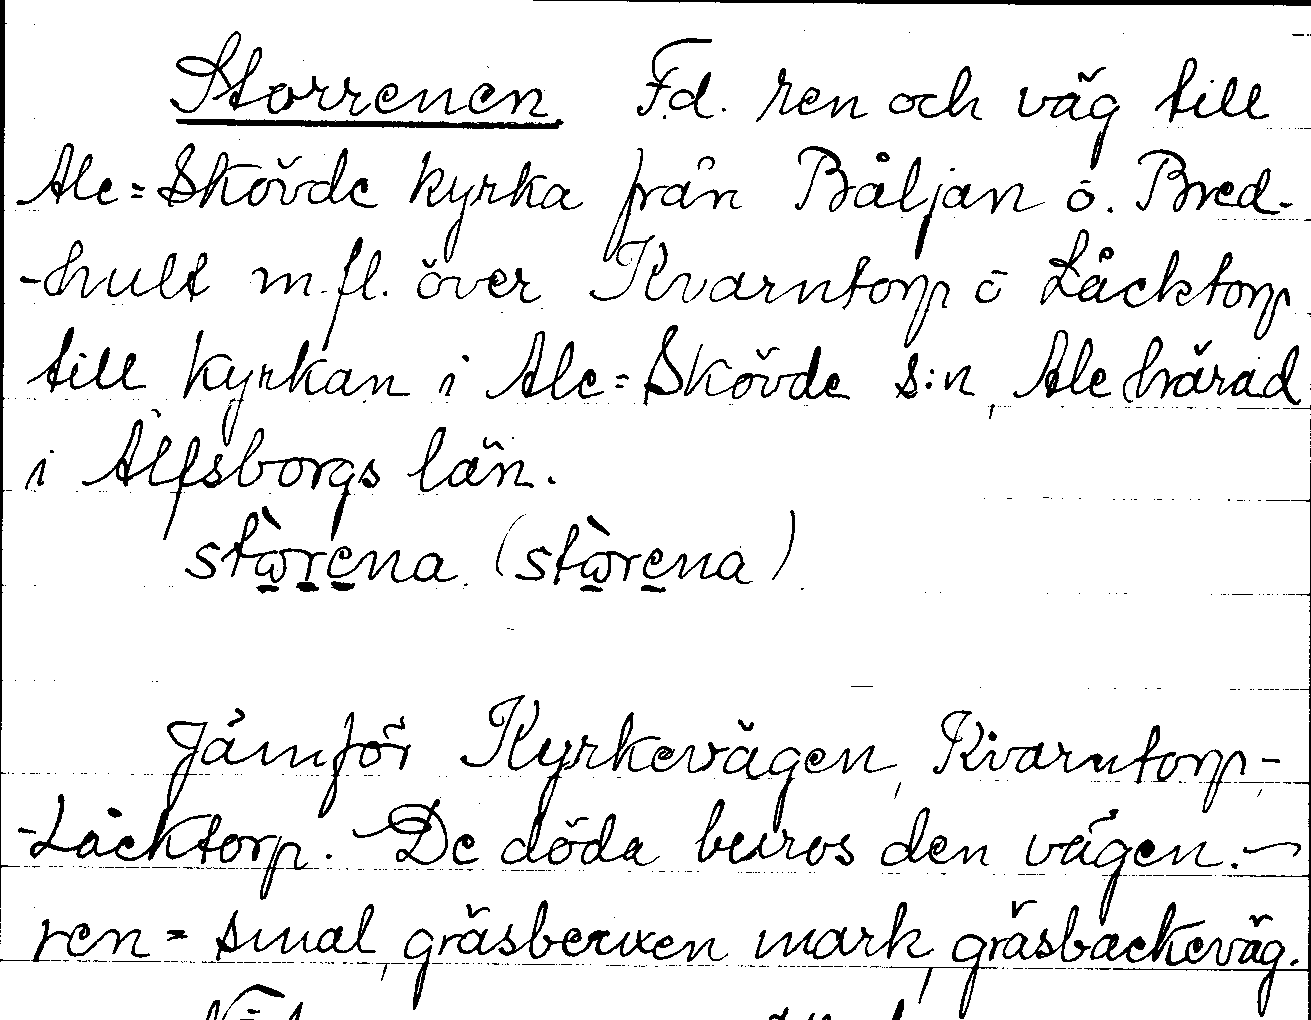 Storrenen. F.d. ren och väg till
Ale=Skövde kyrka från Båljan o. Bred-
-hult m.fl. över Kvarntorp o Låcktorp
till kyrkan i Ale=Skövde s:n, Ale härad
i Älfsborgs län.
stòrena. (stòrena)
Jämför Kyrkevägen, Kvarntorp-
-Låcktorp. De döda buros den vägen. –
ren = smal, gräsbevuxen mark, gräsbackeväg.